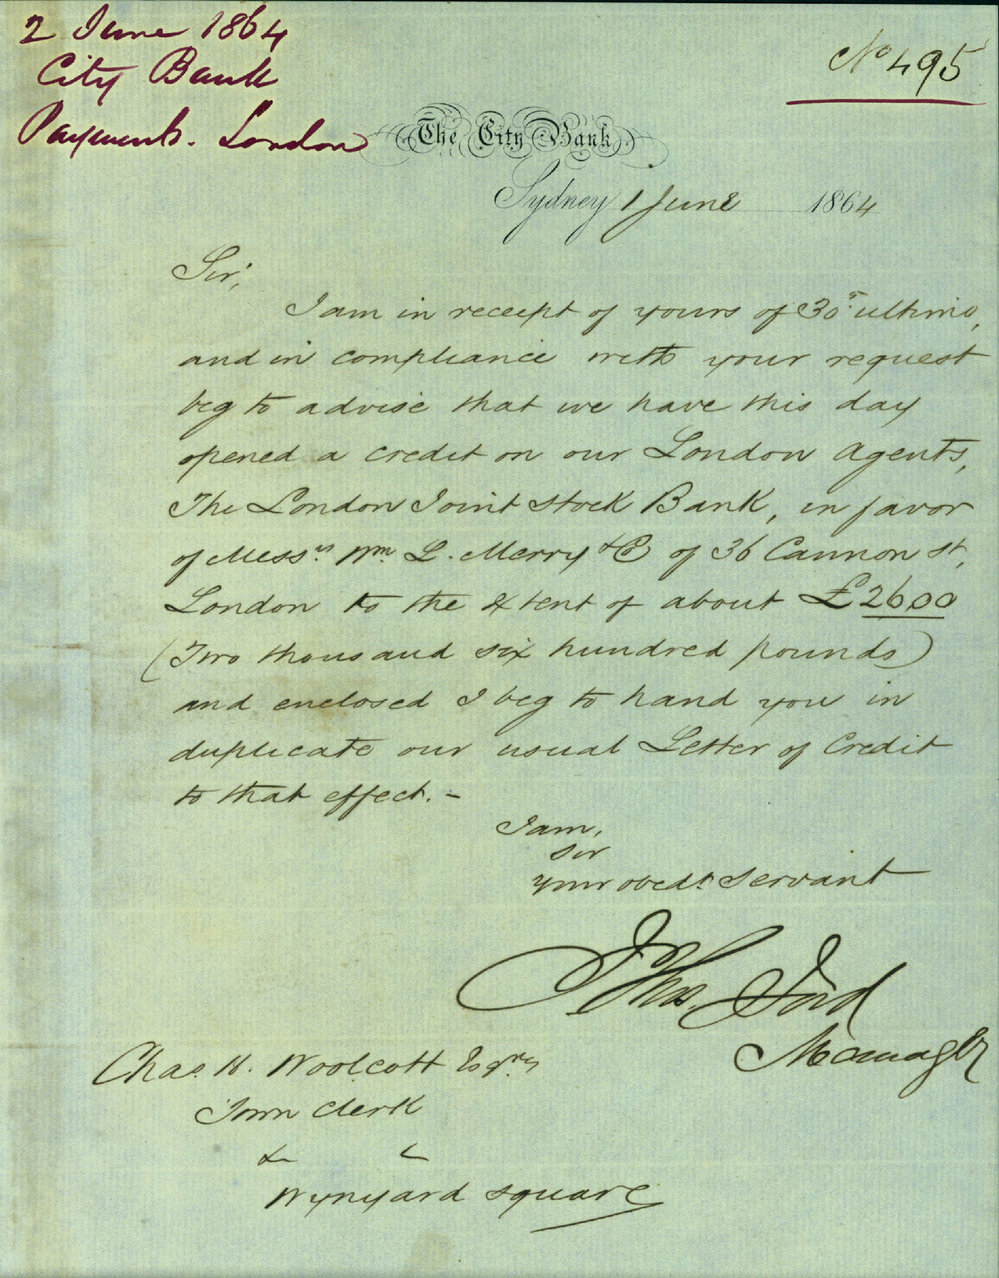 2 June 1864
City Bank
Payments. London
No 495
The City Bank
Sydney 1 June 1864
Sir,
I am in receipt of yours of 30th ultimo,
and in compliance with your request
beg to advise that we have this day
opened a credit on our London Agents,
The London Joint Stock Bank, in favor
of Messrs Wm L. Merry & Co of 36 Cannon St,
London to the extent of about £2600
(Two thousand six hundred pounds)
and enclosed I beg to hand you in
duplicate our usual Letter of Credit
to that effect. –
I am,
Sir
Your obedt Servant
Thos. Ford
Manager
Chas. H. Woolcott Esqre
Town Clerk
& &
Wynyard Square